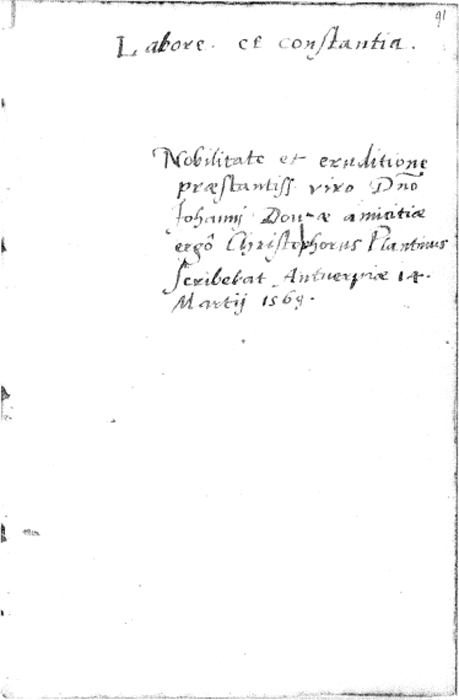 91
Labore. et constantia.
Nobilitate et eruditione
præstantiss viro Dño
Johanni Douzæ amicitiæ
ergô Christophorus Plantinus
scribebat Antuerpiæ 14.
Martij 1569.